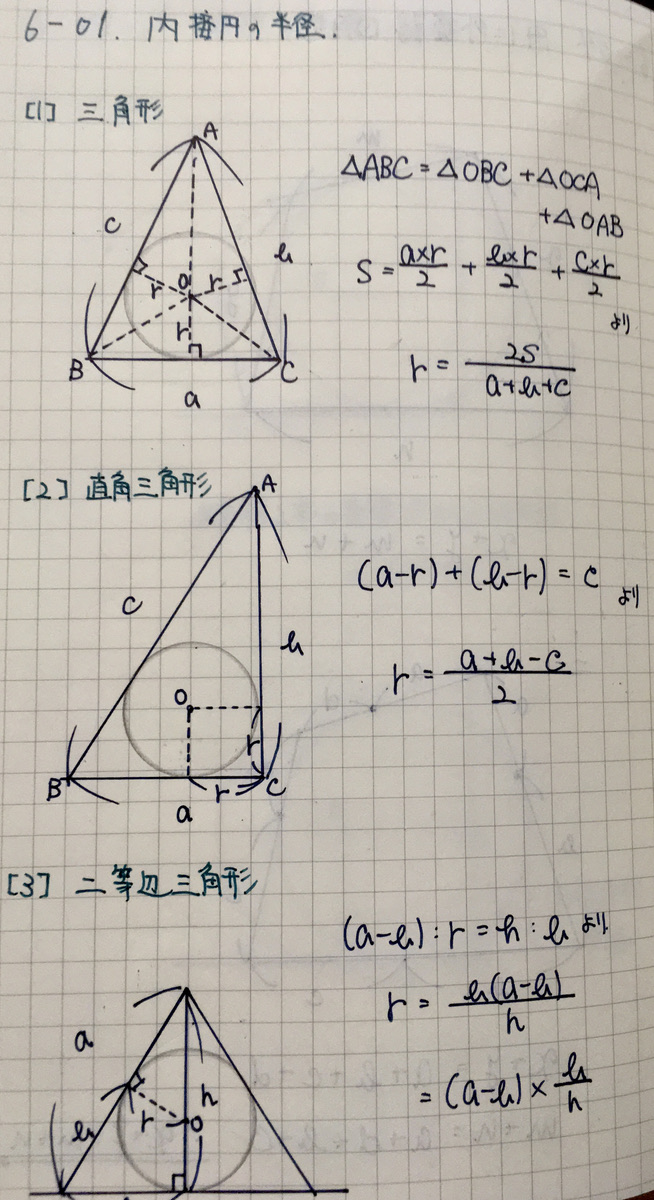 6-01. 内接円の半径.
[1] 三角形
A
c
b
r
O
r
r
B
C
a
△ABC = △OBC + △OCA
+ △OAB
S = a×r/2 + b×r/2 + c×r/2
より
r = 2S/(a+b+c)
[2] 直角三角形
A
c
b
O
r
B
r
C
a
(a-r) + (b-r) = c より
r = (a+b-c)/2
[3] 二等辺三角形
a
h
b
r
O
(a-b) : r = h : b より
r = b(a-b)/h
= (a-b) × b/h